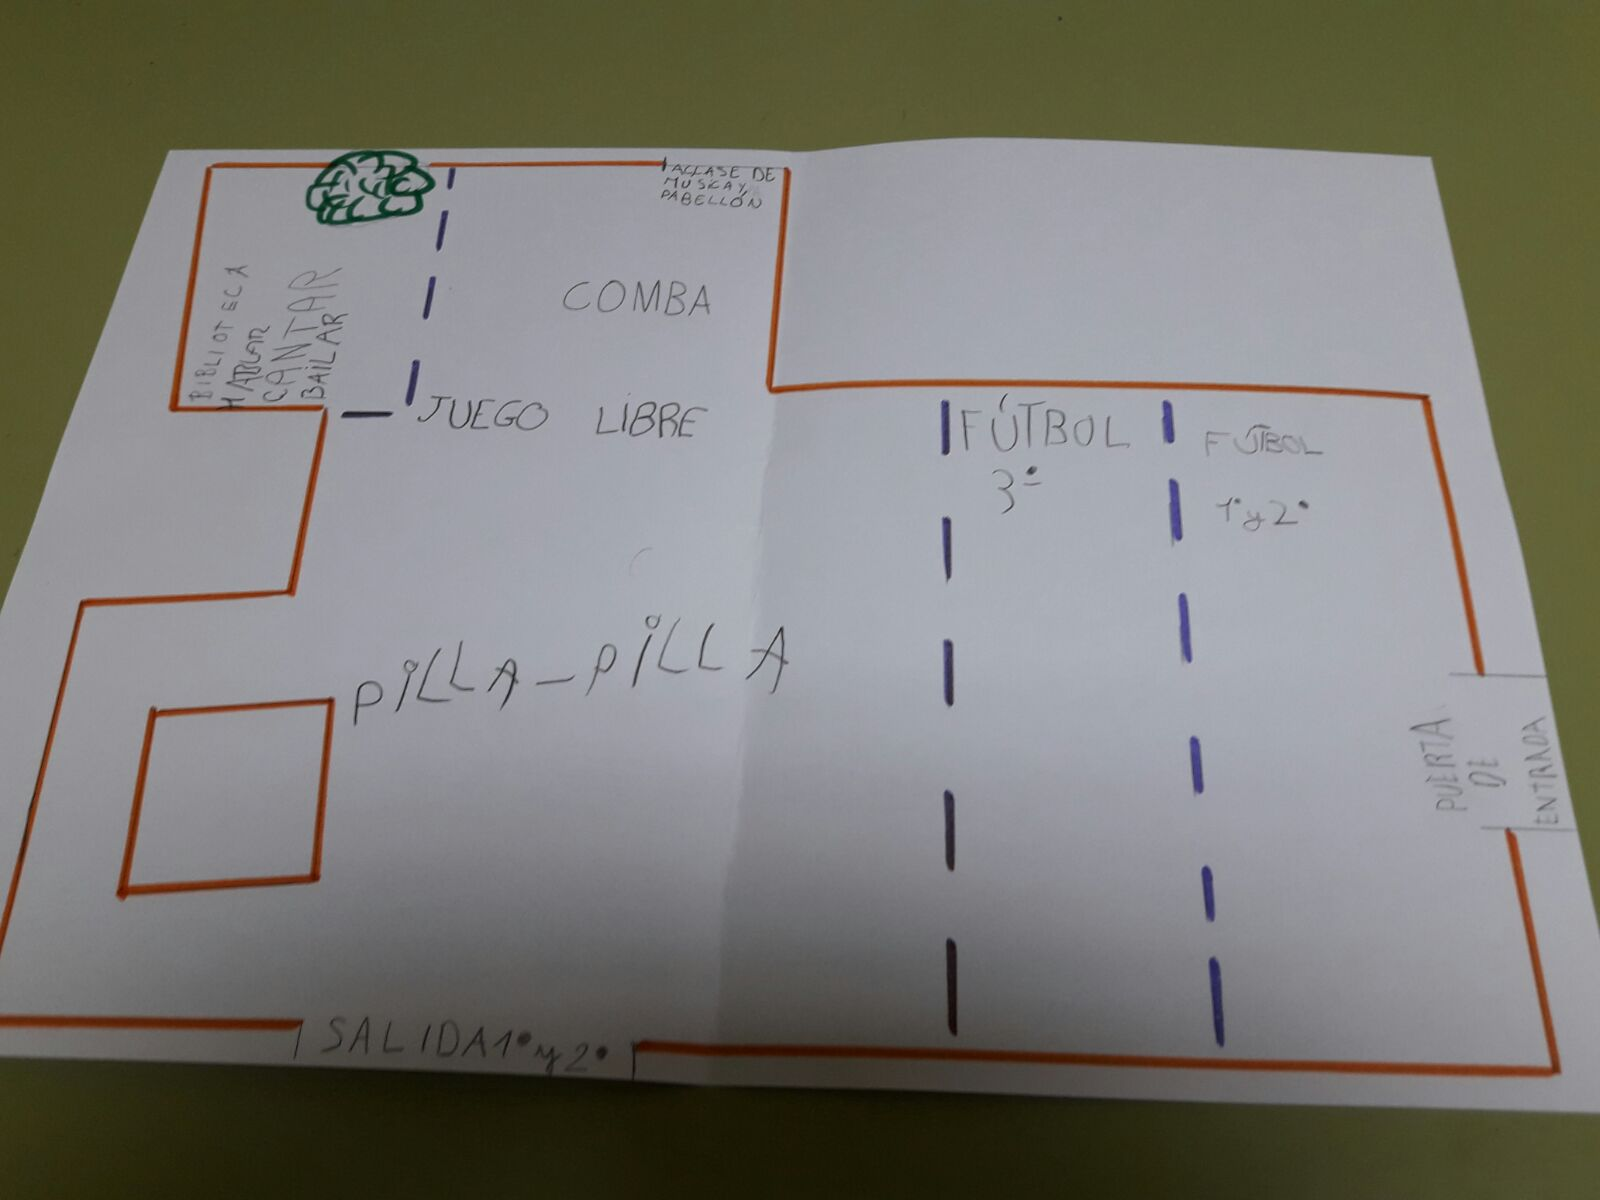 A CLASE DE
MUSICA Y
PABELLÓN
BIBLIOTECA
HABLAR
CANTAR
BAILAR
COMBA
JUEGO LIBRE
FÚTBOL
3º
FÚTBOL
1º y 2º
PILLA-PILLA
PUERTA
DE
ENTRADA
SALIDA 1º y 2º